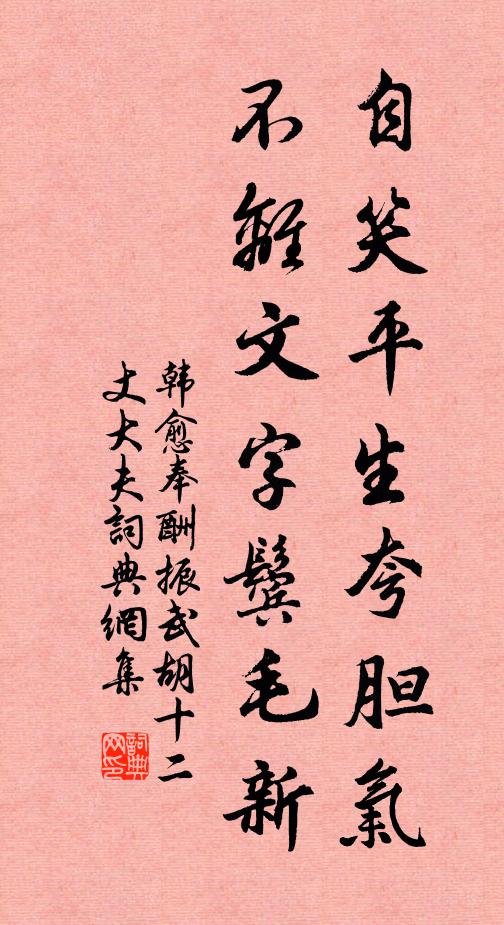 自笑平生夸胆氣
不離文字鬓毛新
韩愈奉酬振武胡十二
丈大夫詞典網集
詞典
网印